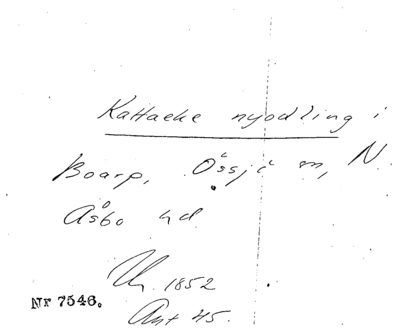 Kattaeke nyodling i
Boarp, Össjö sn, N.
Åsbo hd.
1852
Nr 7546.
Ant 45.